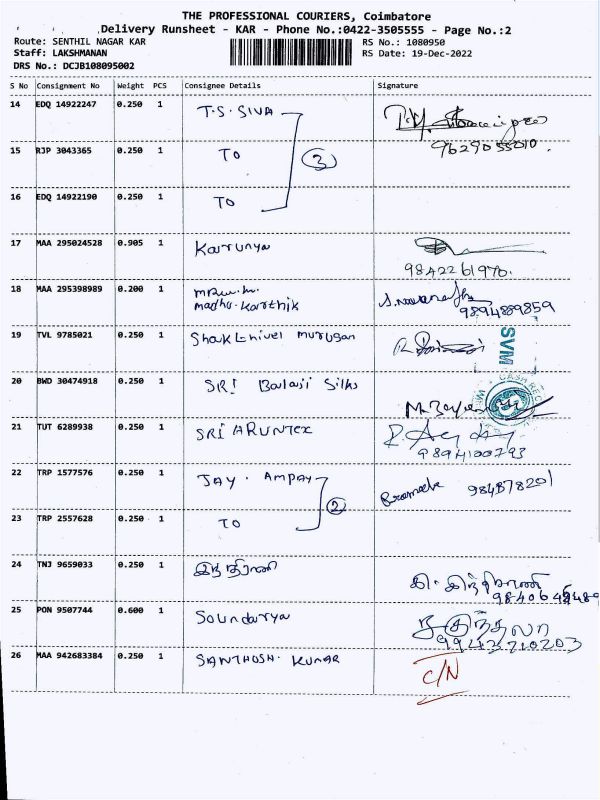 THE PROFESSIONAL COURIERS, Coimbatore
Delivery Runsheet - KAR - Phone No.:0422-3505555 - Page No.:2
Route: SENTHIL NAGAR KAR
RS No.: 1080950
Staff: LAKSHMANAN
RS Date: 19-Dec-2022
DRS No.: DCJB108095002
S No Consignment No Weight PCS Consignee Details Signature
14 EDQ 14922247 0.250 1 T.S. SIVA
15 RJP 3043365 0.250 1 TO 3 9629055010.
16 EDQ 14922190 0.250 1 TO
17 MAA 295024528 0.905 1 Karunya
9842261970.
18 MAA 295398989 0.200 1
madhu. Karthik 9894889859
19 TVL 9785021 0.250 1 Shakthivel murugan
SVM
20 BWD 30474918 0.250 1 SRI Balaji Silks
21 TUT 6289938 0.250 1 SRI ARUNTEX
9894100793
22 TRP 1577576 0.250 1 JAY. AMPAY
2
23 TRP 2557628 0.250 1 TO
24 TNJ 9659033 0.250 1 இந்திராணி
25 PON 9507744 0.600 1 Soundarya சகுந்தலா
9943710203
26 MAA 942683384 0.250 1 SANTHOSH. KUMAR C/N